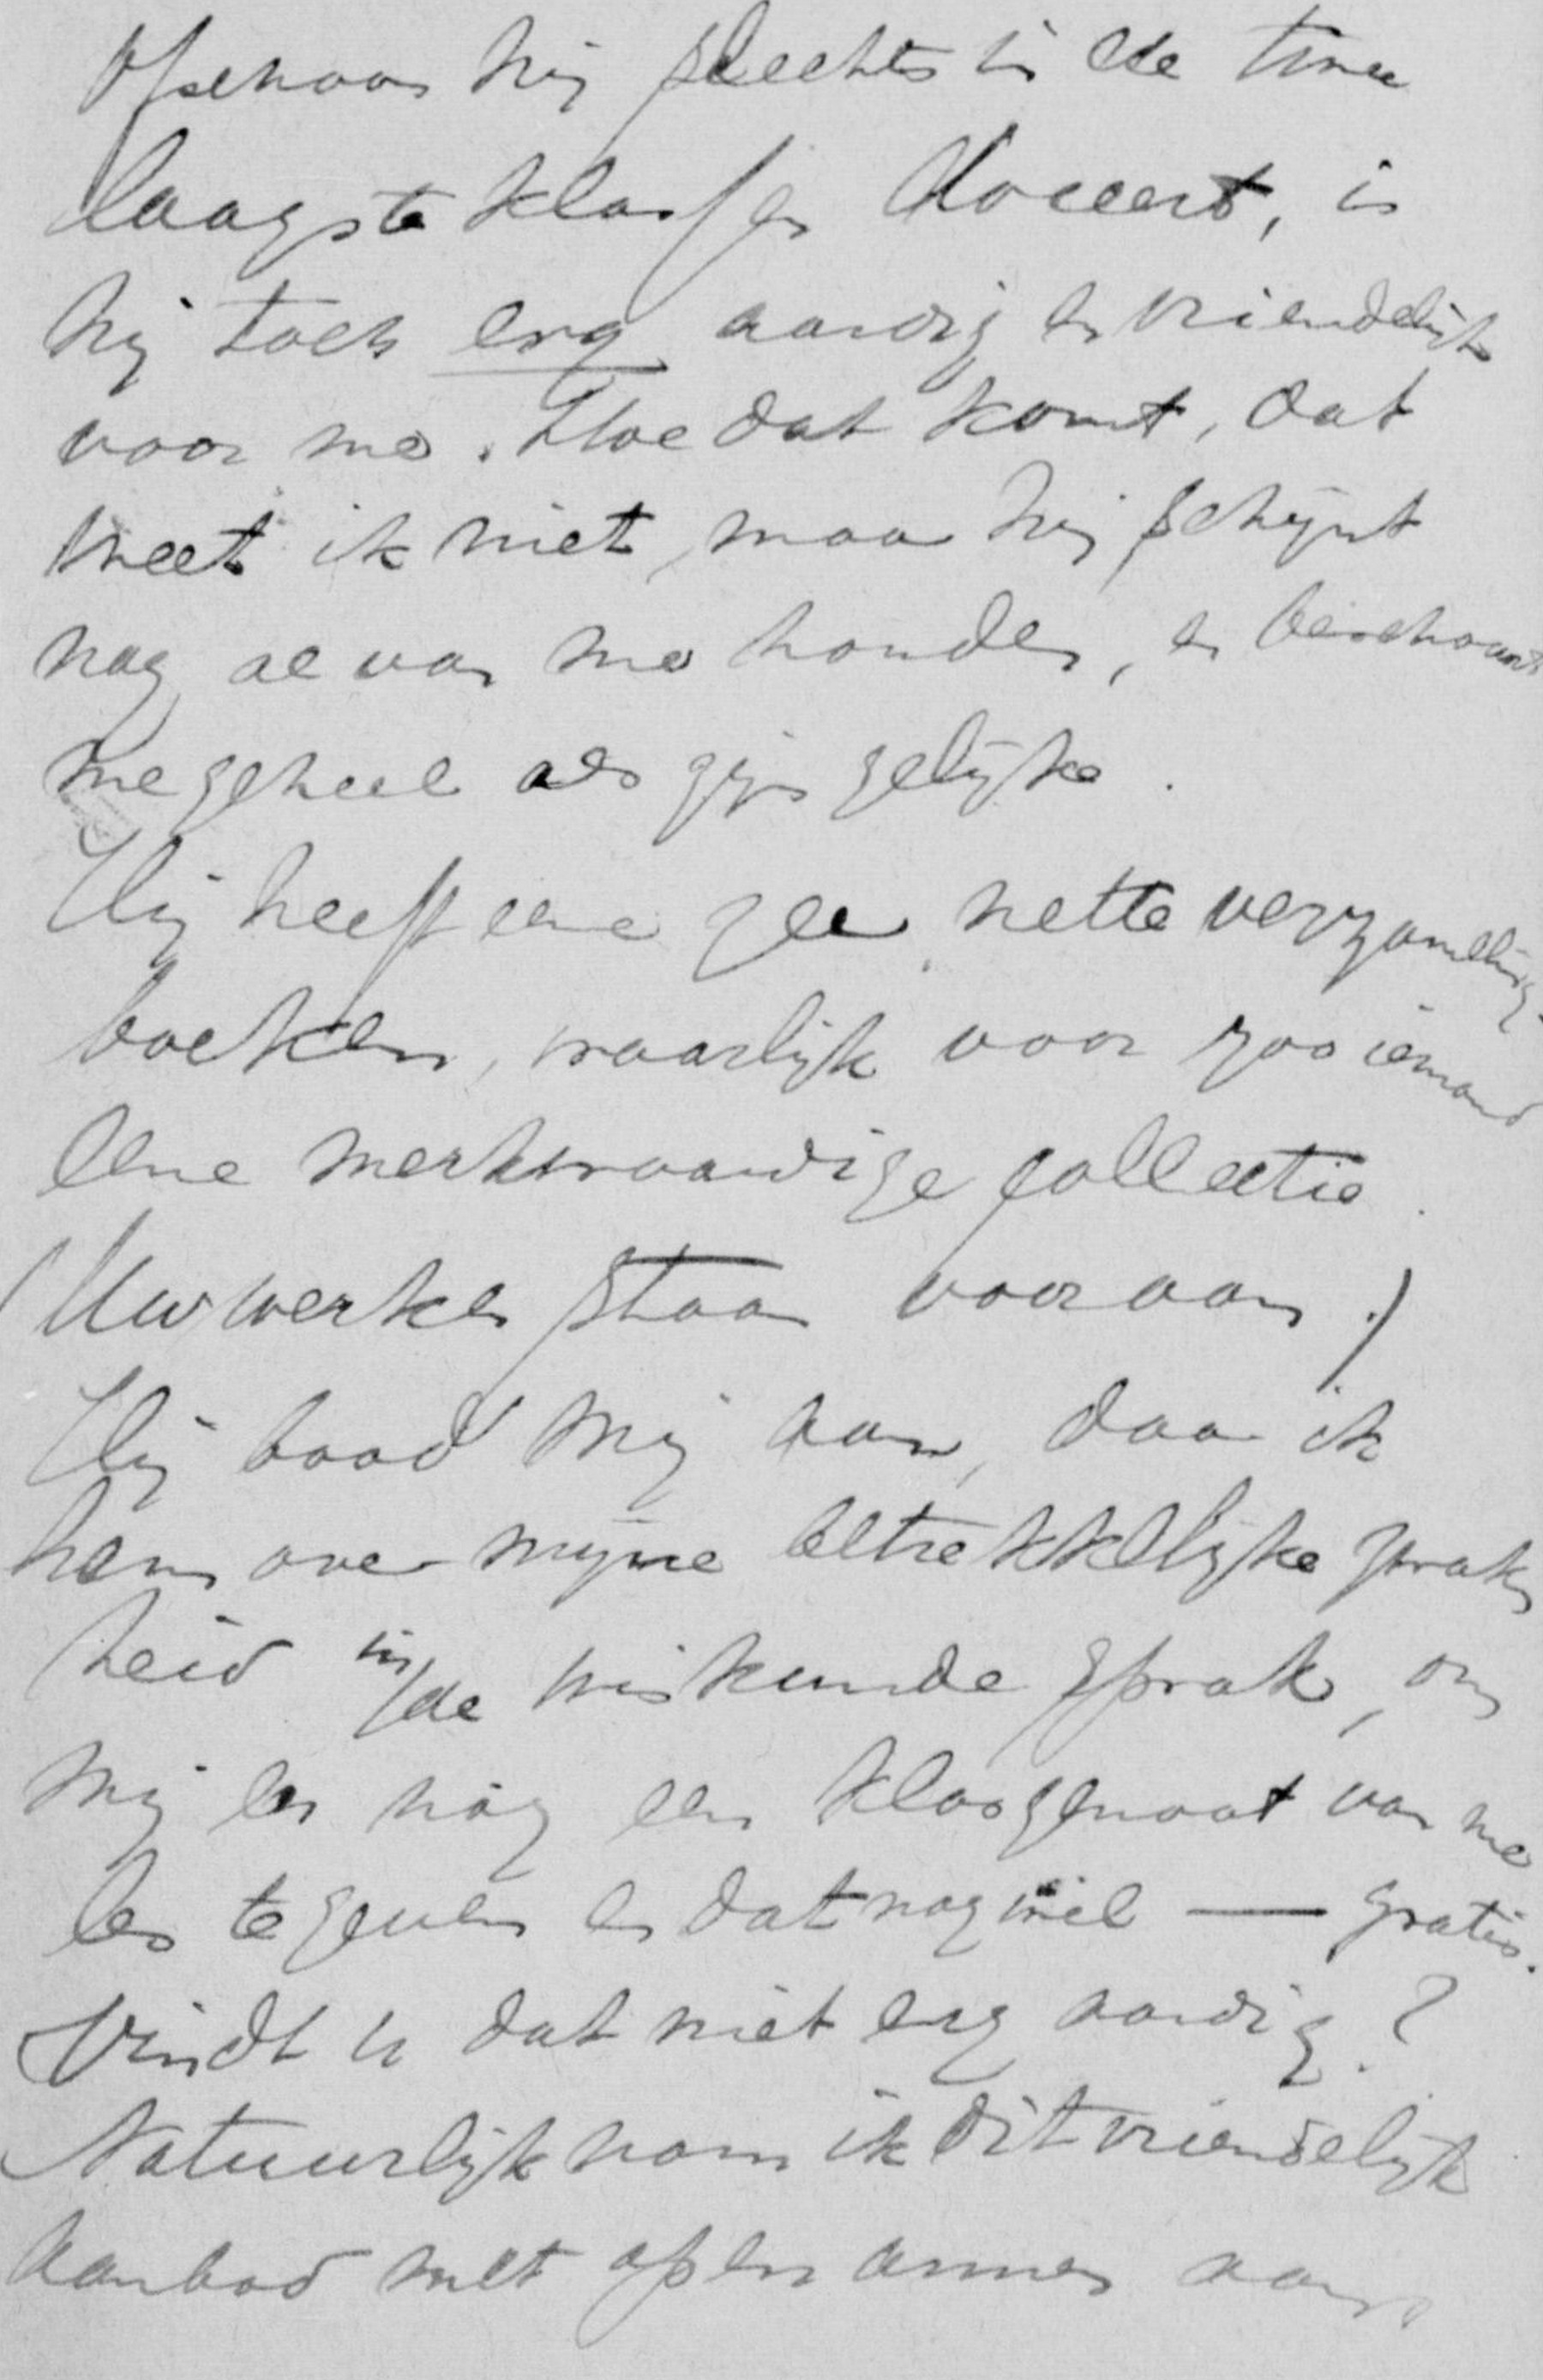 Ofschoon hij slechts in de twee
laagste klassen doceert, is
hij toch erg aardig en vriendelijk
voor me. Hoe dat komt, dat
weet ik niet, maar hij schijnt
nog al van me houden, en beschouwt
me geheel als zijn gelijke.
Hij heeft eene zeer nette verzameling
boeken, waarlijk voor zoo iemand
eene merkwaardige collectie.
(Uw werken staan vooraan.)
Hij bood mij aan, daar ik
hem over mijne betrekkelijke zwak
heid in de wiskunde sprak, om
mij en nòg een klasgenoot van me
les te geven en dat nog wel — gratis.
Vindt u dat niet erg aardig?
Natuurlijk nam ik dit vriendelijk
aanbod met open armen aan